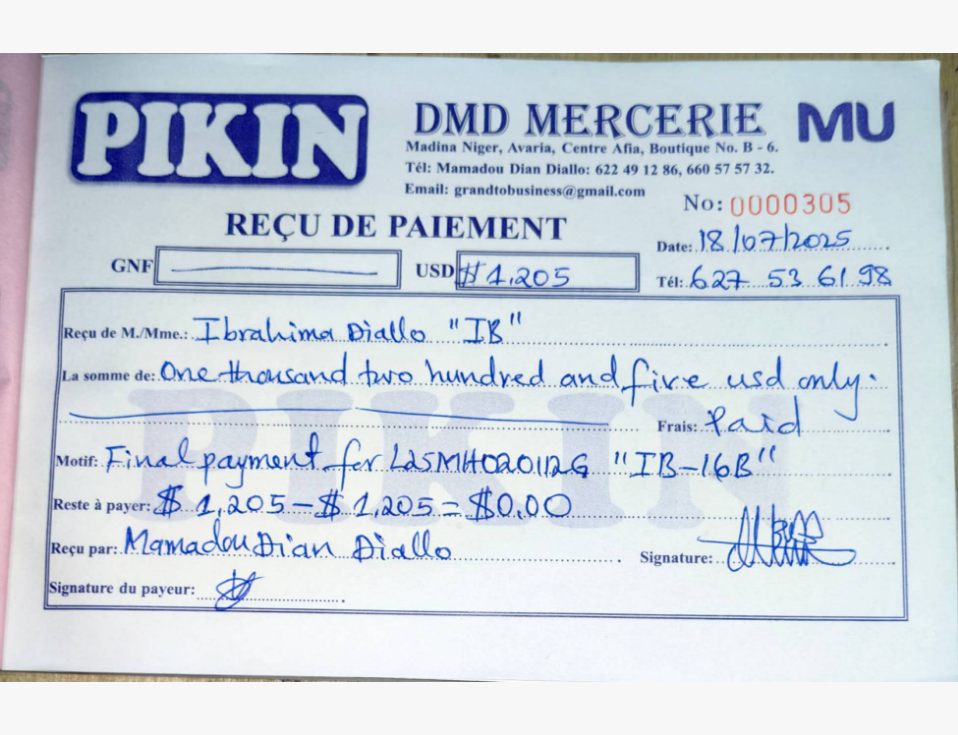 PIKIN
DMD MERCERIE MU
Madina Niger, Avaria, Centre Afia, Boutique No. B - 6.
Tél: Mamadou Dian Diallo: 622 49 12 86, 660 57 57 32.
Email: grandtobusiness@gmail.com
No: 0000305
REÇU DE PAIEMENT
Date: 18/07/2025
GNF USD $1,205
Tél: 627 53 61 98
Reçu de M./Mme.: Ibrahima Diallo "IB"
La somme de: One thousand two hundred and five usd only.
Frais: Paid
Motif: Final payment for "IB-16B"
Reste à payer: $1,205-$1,205=$0,00
Reçu par: Mamadou Dian Diallo
Signature:
Signature du payeur:
PIKIN